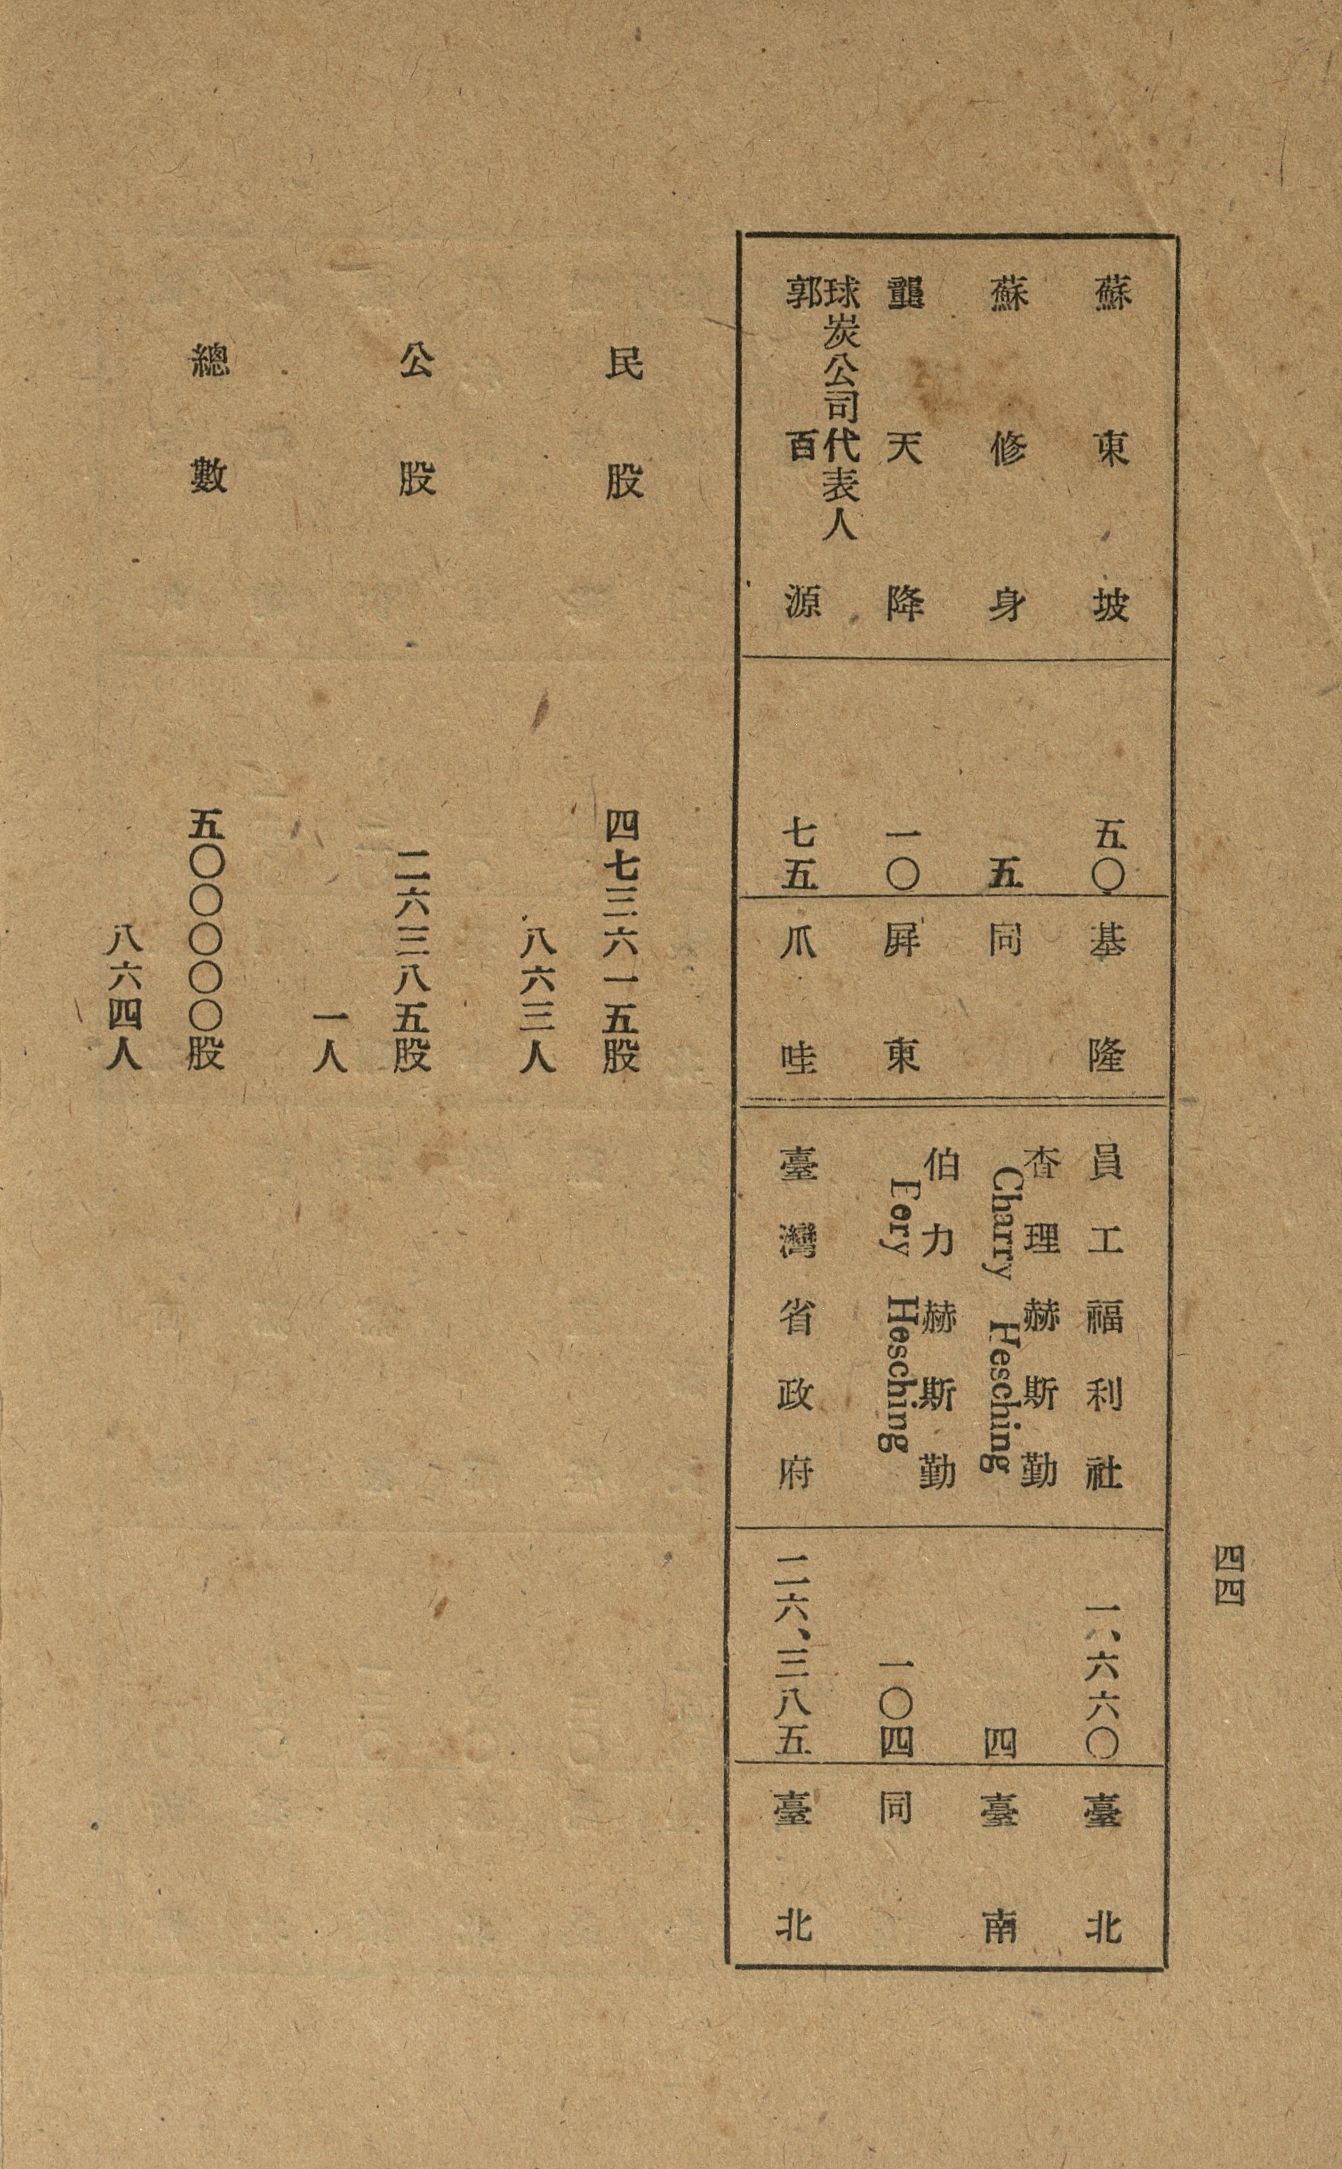 四四
蘇東坡
五〇
基隆
蘇修身
五
同
龔天降
一〇
屏東
球炭公司代表人
郭百源
七五
爪哇
員工福利社
一、六六〇
臺北
查理赫斯勤
Charry Hesching
四
臺南
伯力赫斯勤
Hesching
一〇四
同
臺灣省政府
二六、三八五
臺北
民股
四七三六一五股
八六三人
公股
二六三八五股
一人
總數
五〇〇〇〇〇股
八六四人